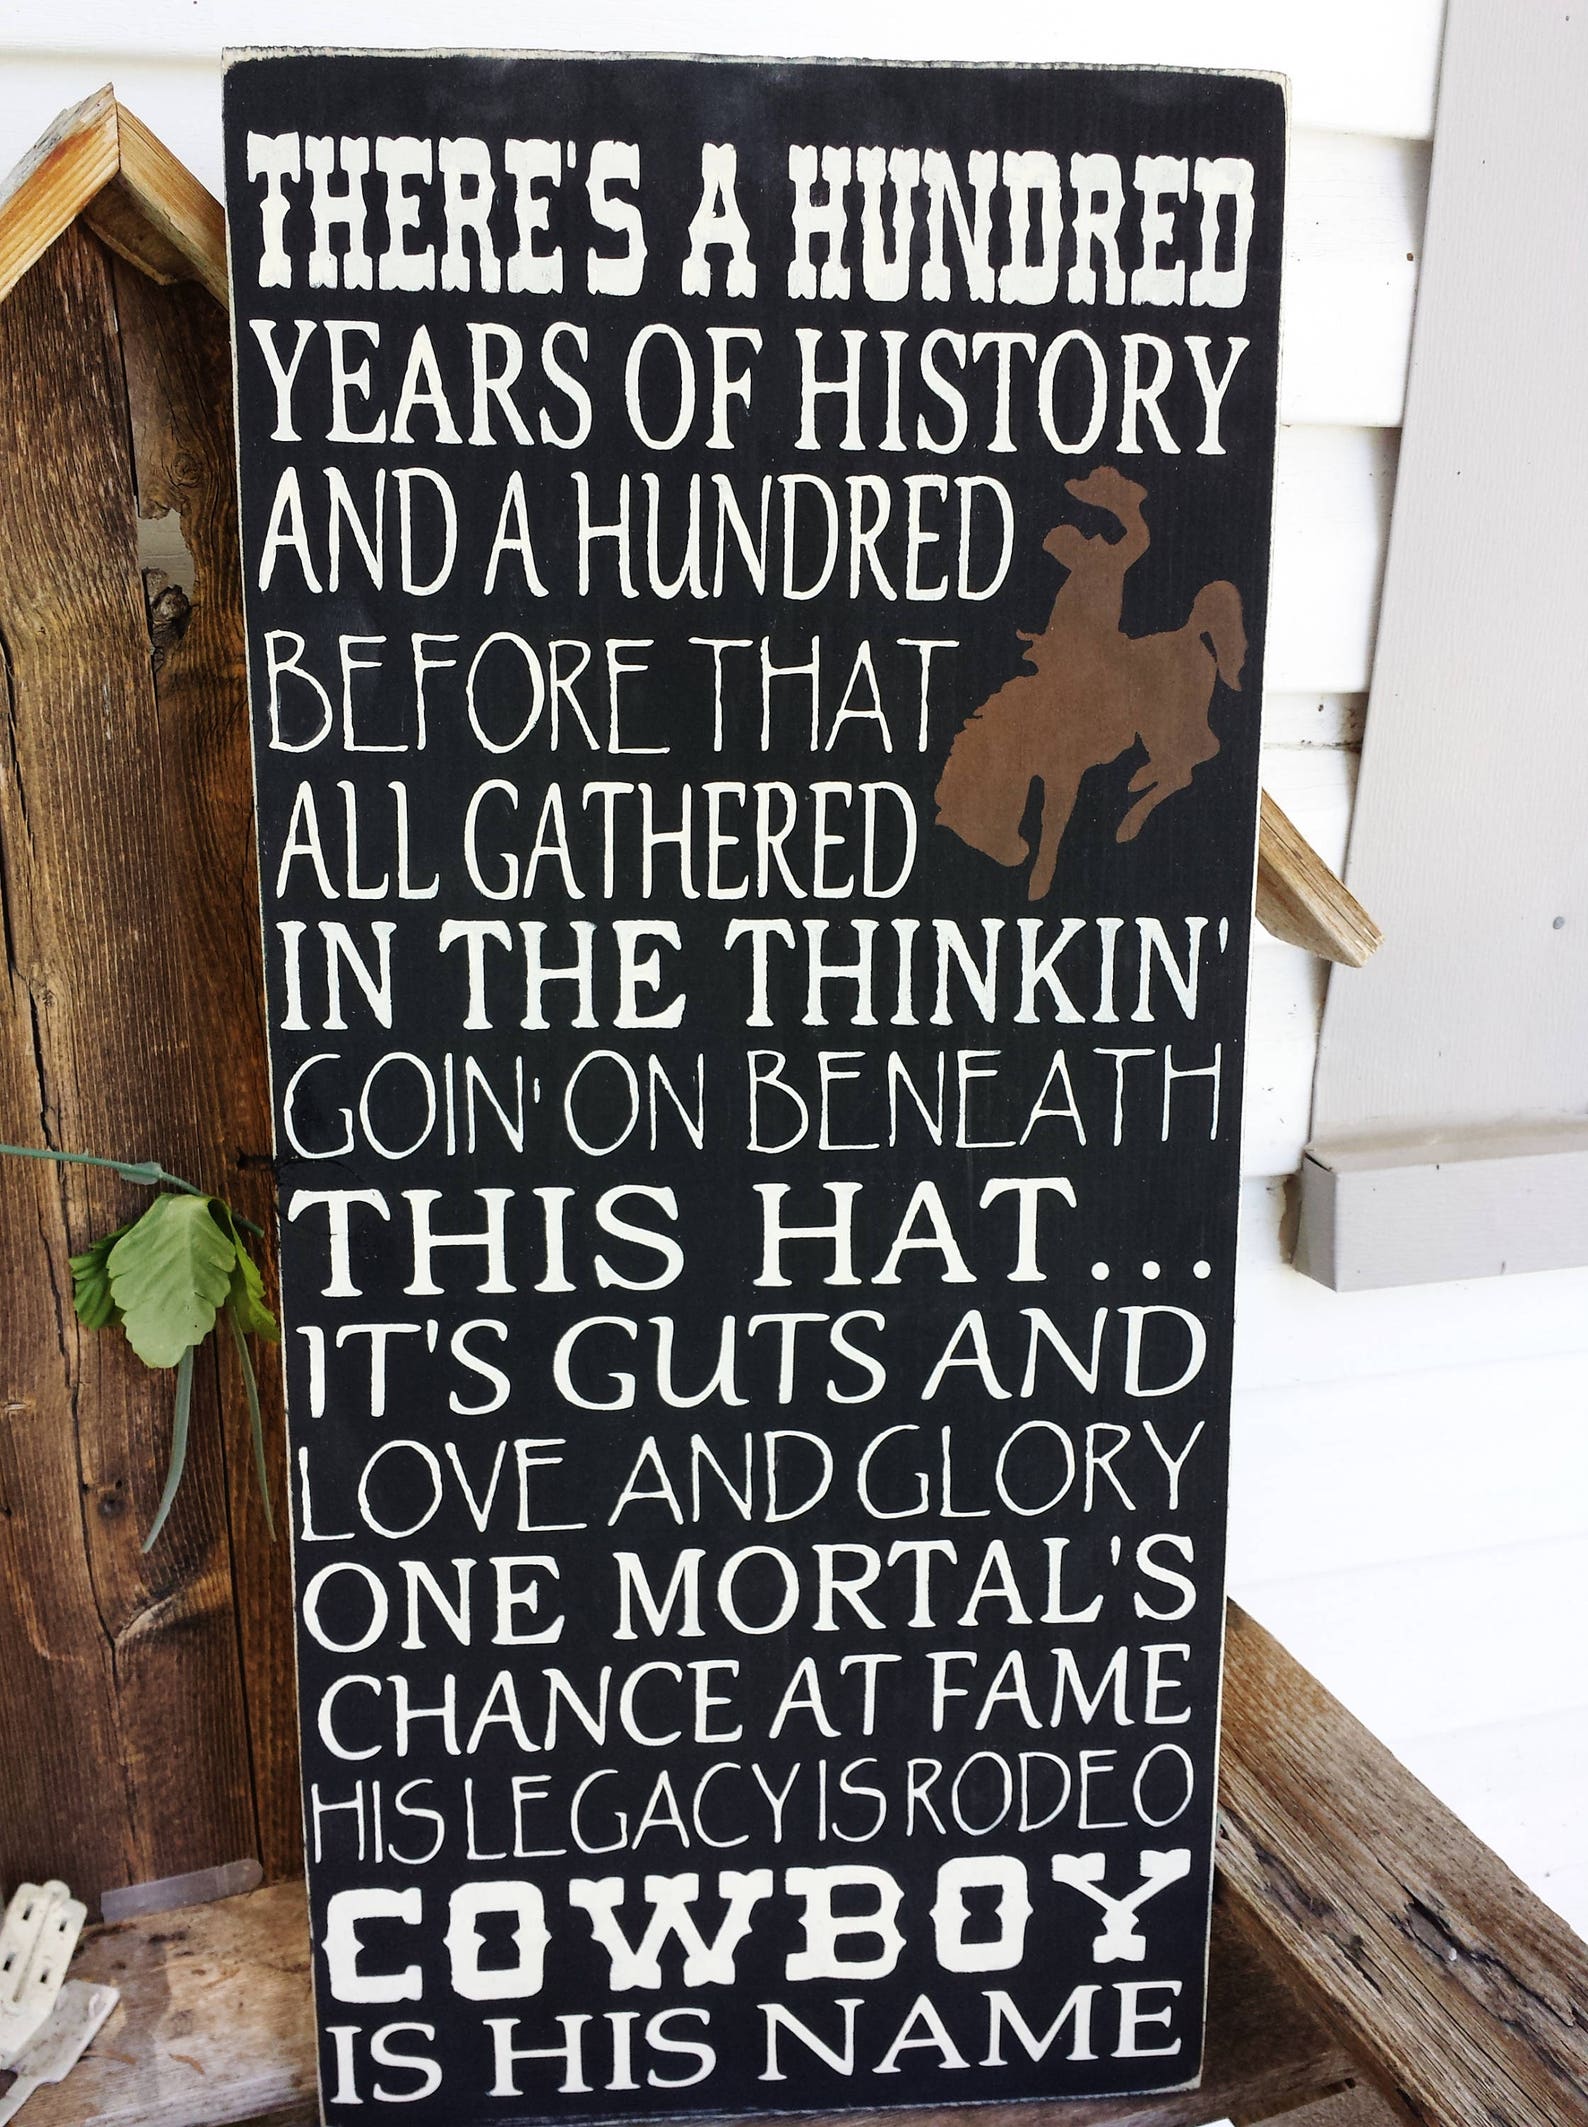 THERE'S A HUNDRED
YEARS OF HISTORY
AND A HUNDRED
BEFORE THAT
ALL GATHERED
IN THE THINKIN'
GOIN' ON BENEATH
THIS HAT...
IT'S GUTS AND
LOVE AND GLORY
ONE MORTAL'S
CHANCE AT FAME
HIS LEGACY IS RODEO
COWBOY
IS HIS NAME